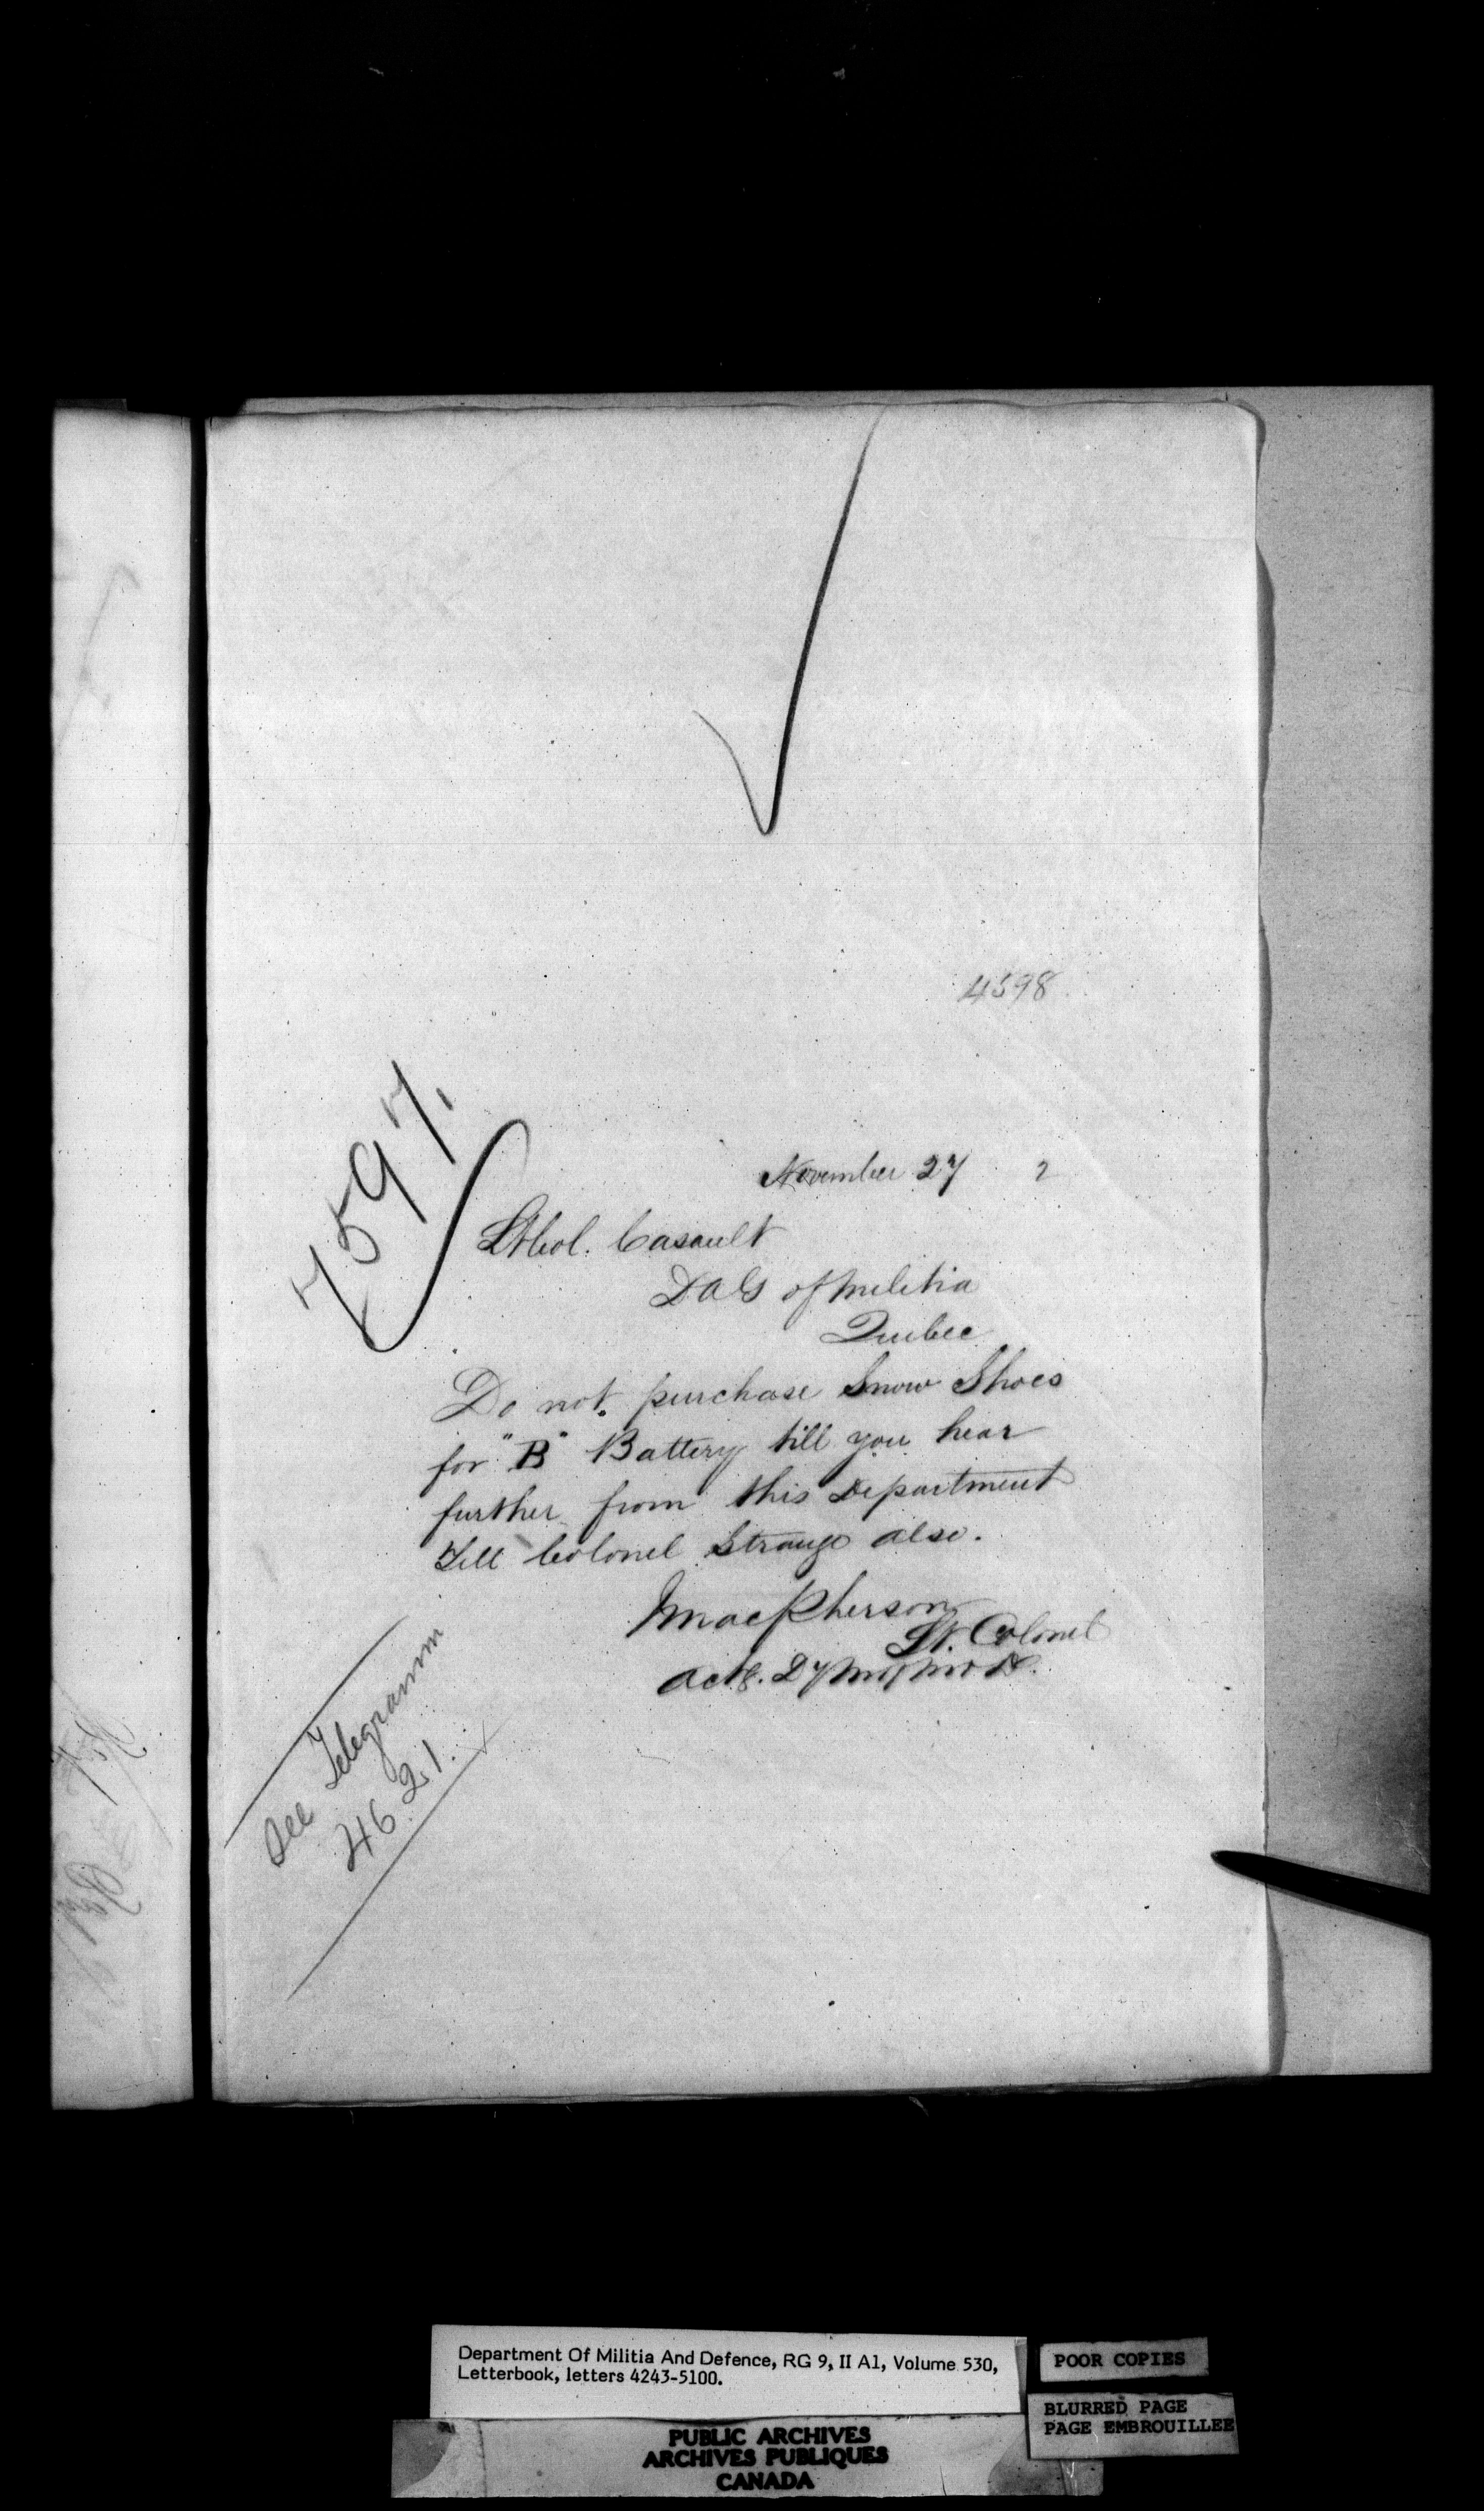 4598
7597.
November 27 2
Lt Col. Casault
DAG of Militia
Quebec
Do not purchase Snow Shoes
for "B" Battery till you hear
further from this Department
Tell Colonel Strange also.
JMacPherson
Lt. Colonel
Actg. Dy M of M & D.
See Telegramm
4621.
Department Of Militia And Defence, RG 9, II A1, Volume 530,
Letterbook, letters 4243-5100.
POOR COPIES
BLURRED PAGE
PAGE EMBROUILLEE
PUBLIC ARCHIVES
ARCHIVES PUBLIQUES
CANADA